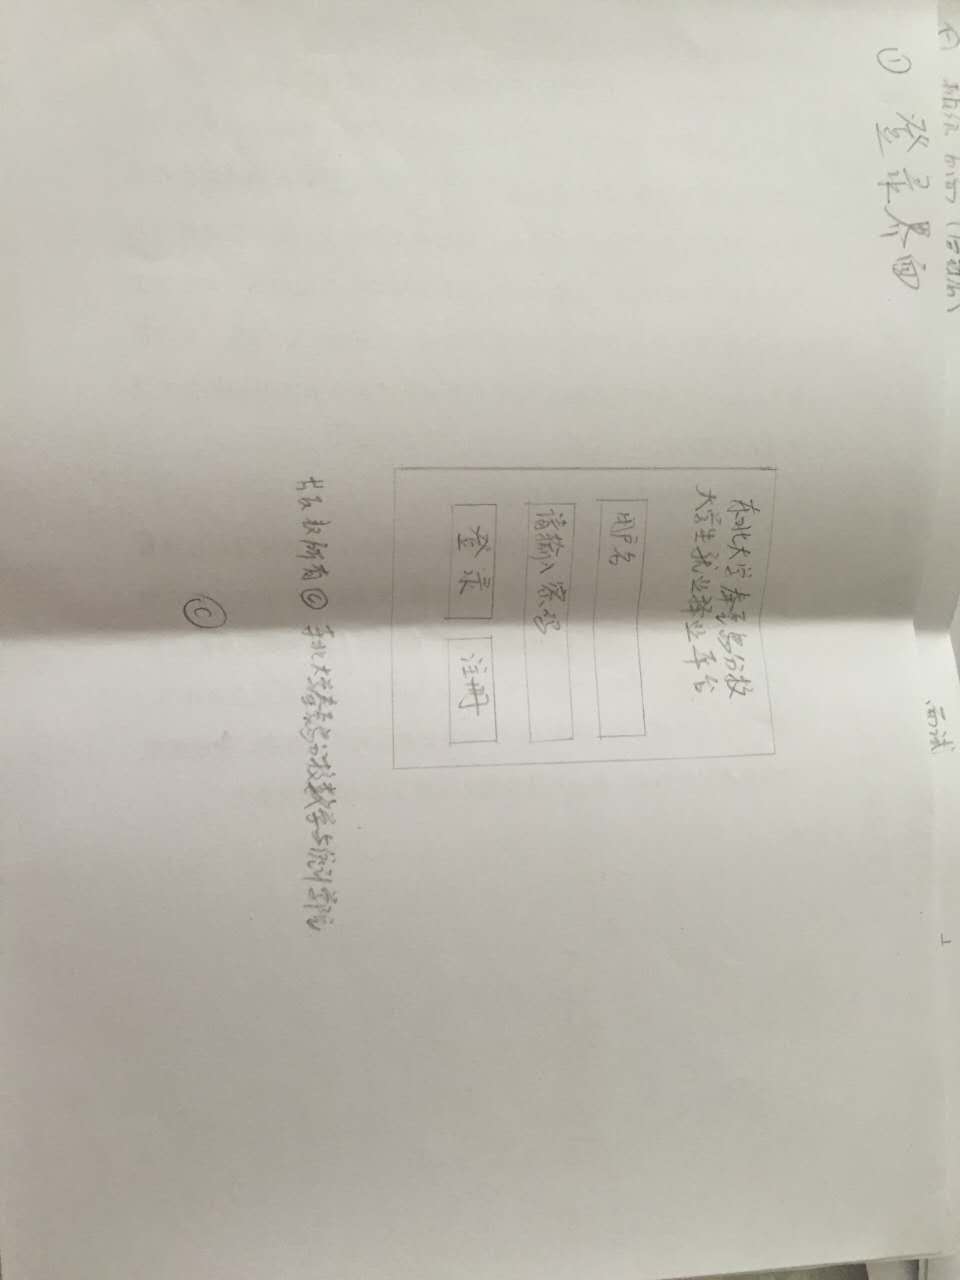 ① 登录界面
东北大学秦皇岛分校
大学生就业择业平台
用户名
请输入密码
登录 注册
权所有© 东北大学秦皇岛分校数学与统计学院
©
面试